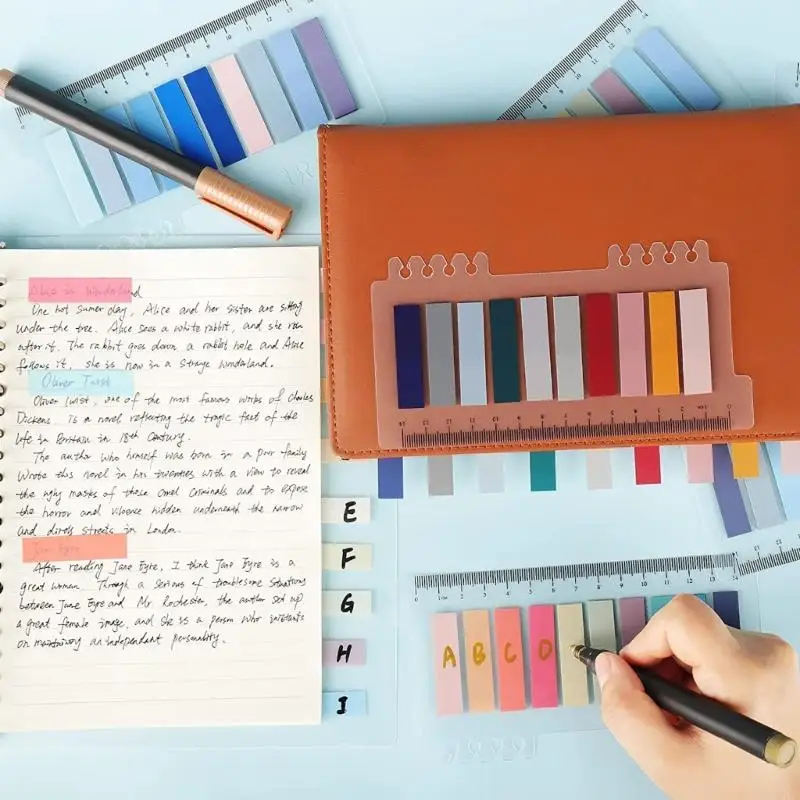 Alice in Wonderland
One hot sumer day, Alice and her sister are sitting
under the tree. Alice sees a white rabbit, and she run
after it. The rabbit goes down a rabbit hole and Alice
follows it, she is now in a strange wonderland.
Oliver Twist
Oliver Twist, one of the most famous works of Charles
Dickens, is a novel reflecting the tragic fact of the
life in Britain in 18th Century.
The author who himself was born in a poor family
wrote this novel in his twenties with a view to reveal
the ugly masks of these cruel criminals and to expose
the horror and violence hidden underneath the narrow
and dirty streets in London.
Jane Eyre
After reading Jane Eyre, I think Jane Eyre is a
great woman. Through a serious of troublesome situations
between Jane Eyre and Mr Rochester, the author set up
a great female image, and she is a person who insists
on maintaining an independant personality.
E
F
G
H
I
A B C D